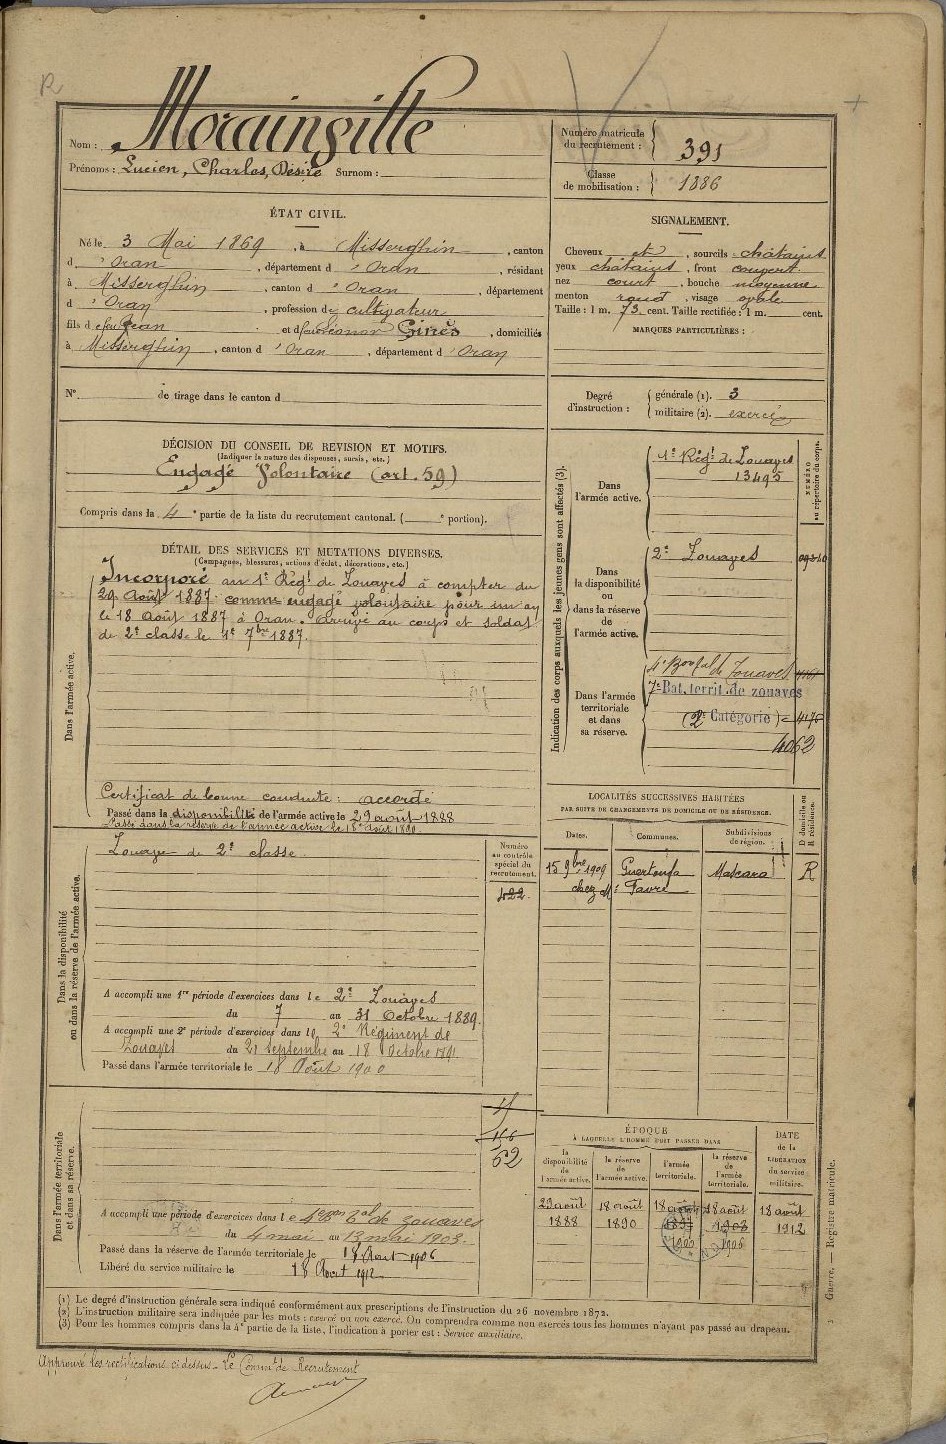 R
Nom : Morainville
Prénoms : Lucien, Charles, Désiré Surnom :
Numéro matricule du recrutement : 391
Classe de mobilisation : 1886
ÉTAT CIVIL.
Né le 3 Mai 1869, à Misserghin, canton
d'Oran, département d'Oran, résidant
à Misserghin, canton d'Oran, département
d'Oran, profession de cultivateur
fils de feu Jean et de feu Eléonor Ginès, domiciliés
à Misserghin, canton d'Oran, département d'Oran
N° de tirage dans le canton d
SIGNALEMENT.
Cheveux et, sourcils châtains
yeux châtains, front couvert
nez court, bouche moyenne
menton rond, visage ovale
Taille : 1 m. 73 cent. Taille rectifiée : 1 m. cent.
MARQUES PARTICULIÈRES :
Degré d'instruction :
générale (1). 3
militaire (2). exercé
DÉCISION DU CONSEIL DE REVISION ET MOTIFS.
(Indiquer la nature des dispenses, sursis, etc.)
Engagé Volontaire (art. 59)
Compris dans la 4e partie de la liste du recrutement cantonal. ( e portion).
DÉTAIL DES SERVICES ET MUTATIONS DIVERSES.
(Campagnes, blessures, actions d'éclat, décorations, etc.)
Dans l'armée active.
Incorporé au 1r Régt de Zouaves à compter du
29 Août 1887 comme engagé volontaire pour un an
le 18 Août 1887 à Oran. Arrivé au corps et soldat
de 2e classe le 1r 7bre 1887.
Certificat de bonne conduite : accordé
Passé dans la disponibilité de l'armée active le 29 août 1888
Passé dans la réserve de l'armée active le 18 août 1890
Indication des corps auxquels les jeunes gens sont affectés (3).
NUMÉRO au répertoire du corps.
Dans l'armée active.
1r Régt de Zouaves
13495
Dans la disponibilité ou dans la réserve de l'armée active.
2e Zouaves
Dans l'armée territoriale et dans sa réserve.
4e Bon tal de Zouaves
7e Bat. territ. de zouaves
(2e Catégorie) 4176
4062
LOCALITÉS SUCCESSIVES HABITÉES
PAR SUITE DE CHANGEMENTS DE DOMICILE OU DE RÉSIDENCE.
Dates. Communes. Subdivisions de région. D domicile ou R résidence.
15 9bre 1909 Guertoufa Mascara R
chez Mr Favre
Dans la disponibilité ou dans la réserve de l'armée active.
Zouave de 2e classe
Numéro au contrôle spécial du recrutement.
422
A accompli une 1re période d'exercices dans le 2e Zouaves
du 7 au 31 Octobre 1889.
A accompli une 2e période d'exercices dans le 2e Régiment de
Zouaves du 21 Septembre au 18 Octobre 1891
Passé dans l'armée territoriale le 18 Août 1900
Dans l'armée territoriale et dans sa réserve.
62
A accompli une période d'exercices dans le 4e Bon tal de zouaves
du 4 mai au 13 mai 1903.
Passé dans la réserve de l'armée territoriale le 18 Août 1906
Libéré du service militaire le 18 Août 1912
ÉPOQUE
À LAQUELLE L'HOMME DOIT PASSER DANS
la disponibilité de l'armée active. la réserve de l'armée active. l'armée territoriale. la réserve de l'armée territoriale.
DATE de la LIBÉRATION du service militaire.
29 août 1888
18 août 1890
18 août 1897 1900
18 août 1903 1906
18 août 1912
Guerre. — Registre matricule.
(1) Le degré d'instruction générale sera indiqué conformément aux prescriptions de l'instruction du 26 novembre 1872.
(2) L'instruction militaire sera indiquée par les mots : exercé ou non exercé. On comprendra comme non exercés tous les hommes n'ayant pas passé au drapeau.
(3) Pour les hommes compris dans la 4e partie de la liste, l'indication à porter est : Service auxiliaire.
Approuvé les rectifications ci dessus. Le Commt de Recrutement